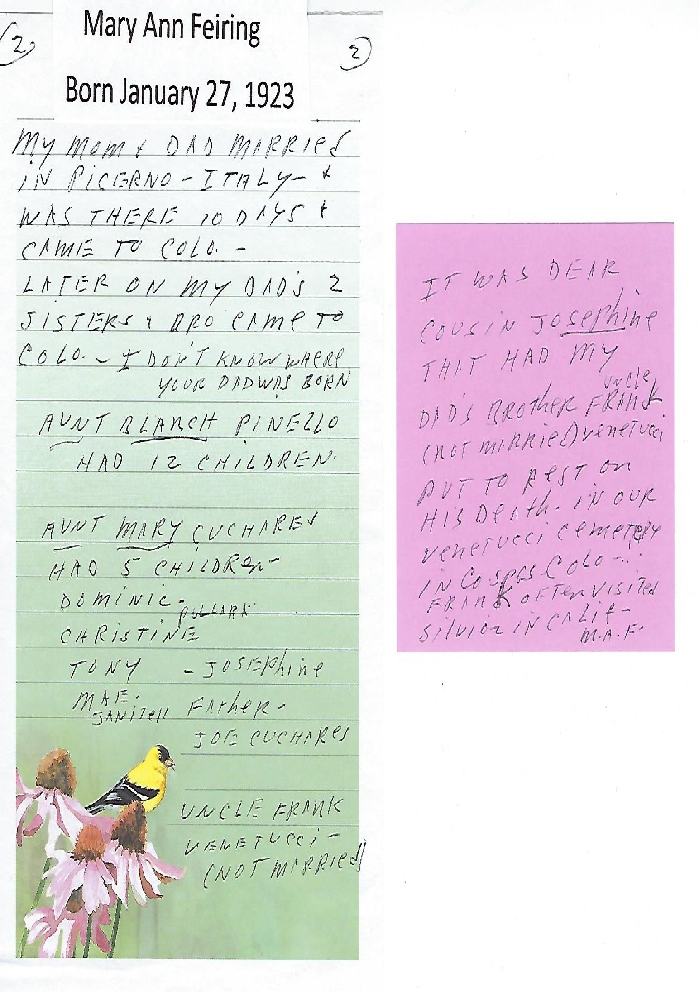 (2)
2)
Mary Ann Feiring
Born January 27, 1923
MY MOM & DAD MARRIED
IN PICERNO - ITALY - &
WAS THERE 10 DAYS &
CAME TO COLO. -
LATER ON MY DAD'S 2
SISTERS & BRO CAME TO
COLO. - I DON'T KNOW WHERE
YOUR DAD WAS BORN
AUNT BLANCH PINELLO
HAD 12 CHILDREN.
AUNT MARY CUCHARES
HAD 5 CHILDREN -
DOMINIC -
CHRISTINE
TONY - JOSEPHINE
MAE -
JANITELL FATHER -
JOE CUCHARES
UNCLE FRANK
VENETUCCI -
(NOT MARRIED)
IT WAS DEAR
COUSIN JOSEPHINE
THAT HAD MY
uncle
DAD'S BROTHER FRANK
(NOT MARRIED) VENETUCCI
PUT TO REST ON
HIS DEATH - IN OUR
VENETUCCI CEMETERY
IN CO SPGS COLO -
FRANK OFTEN VISITED
SILVIO IN CALIF -
M.A.F.